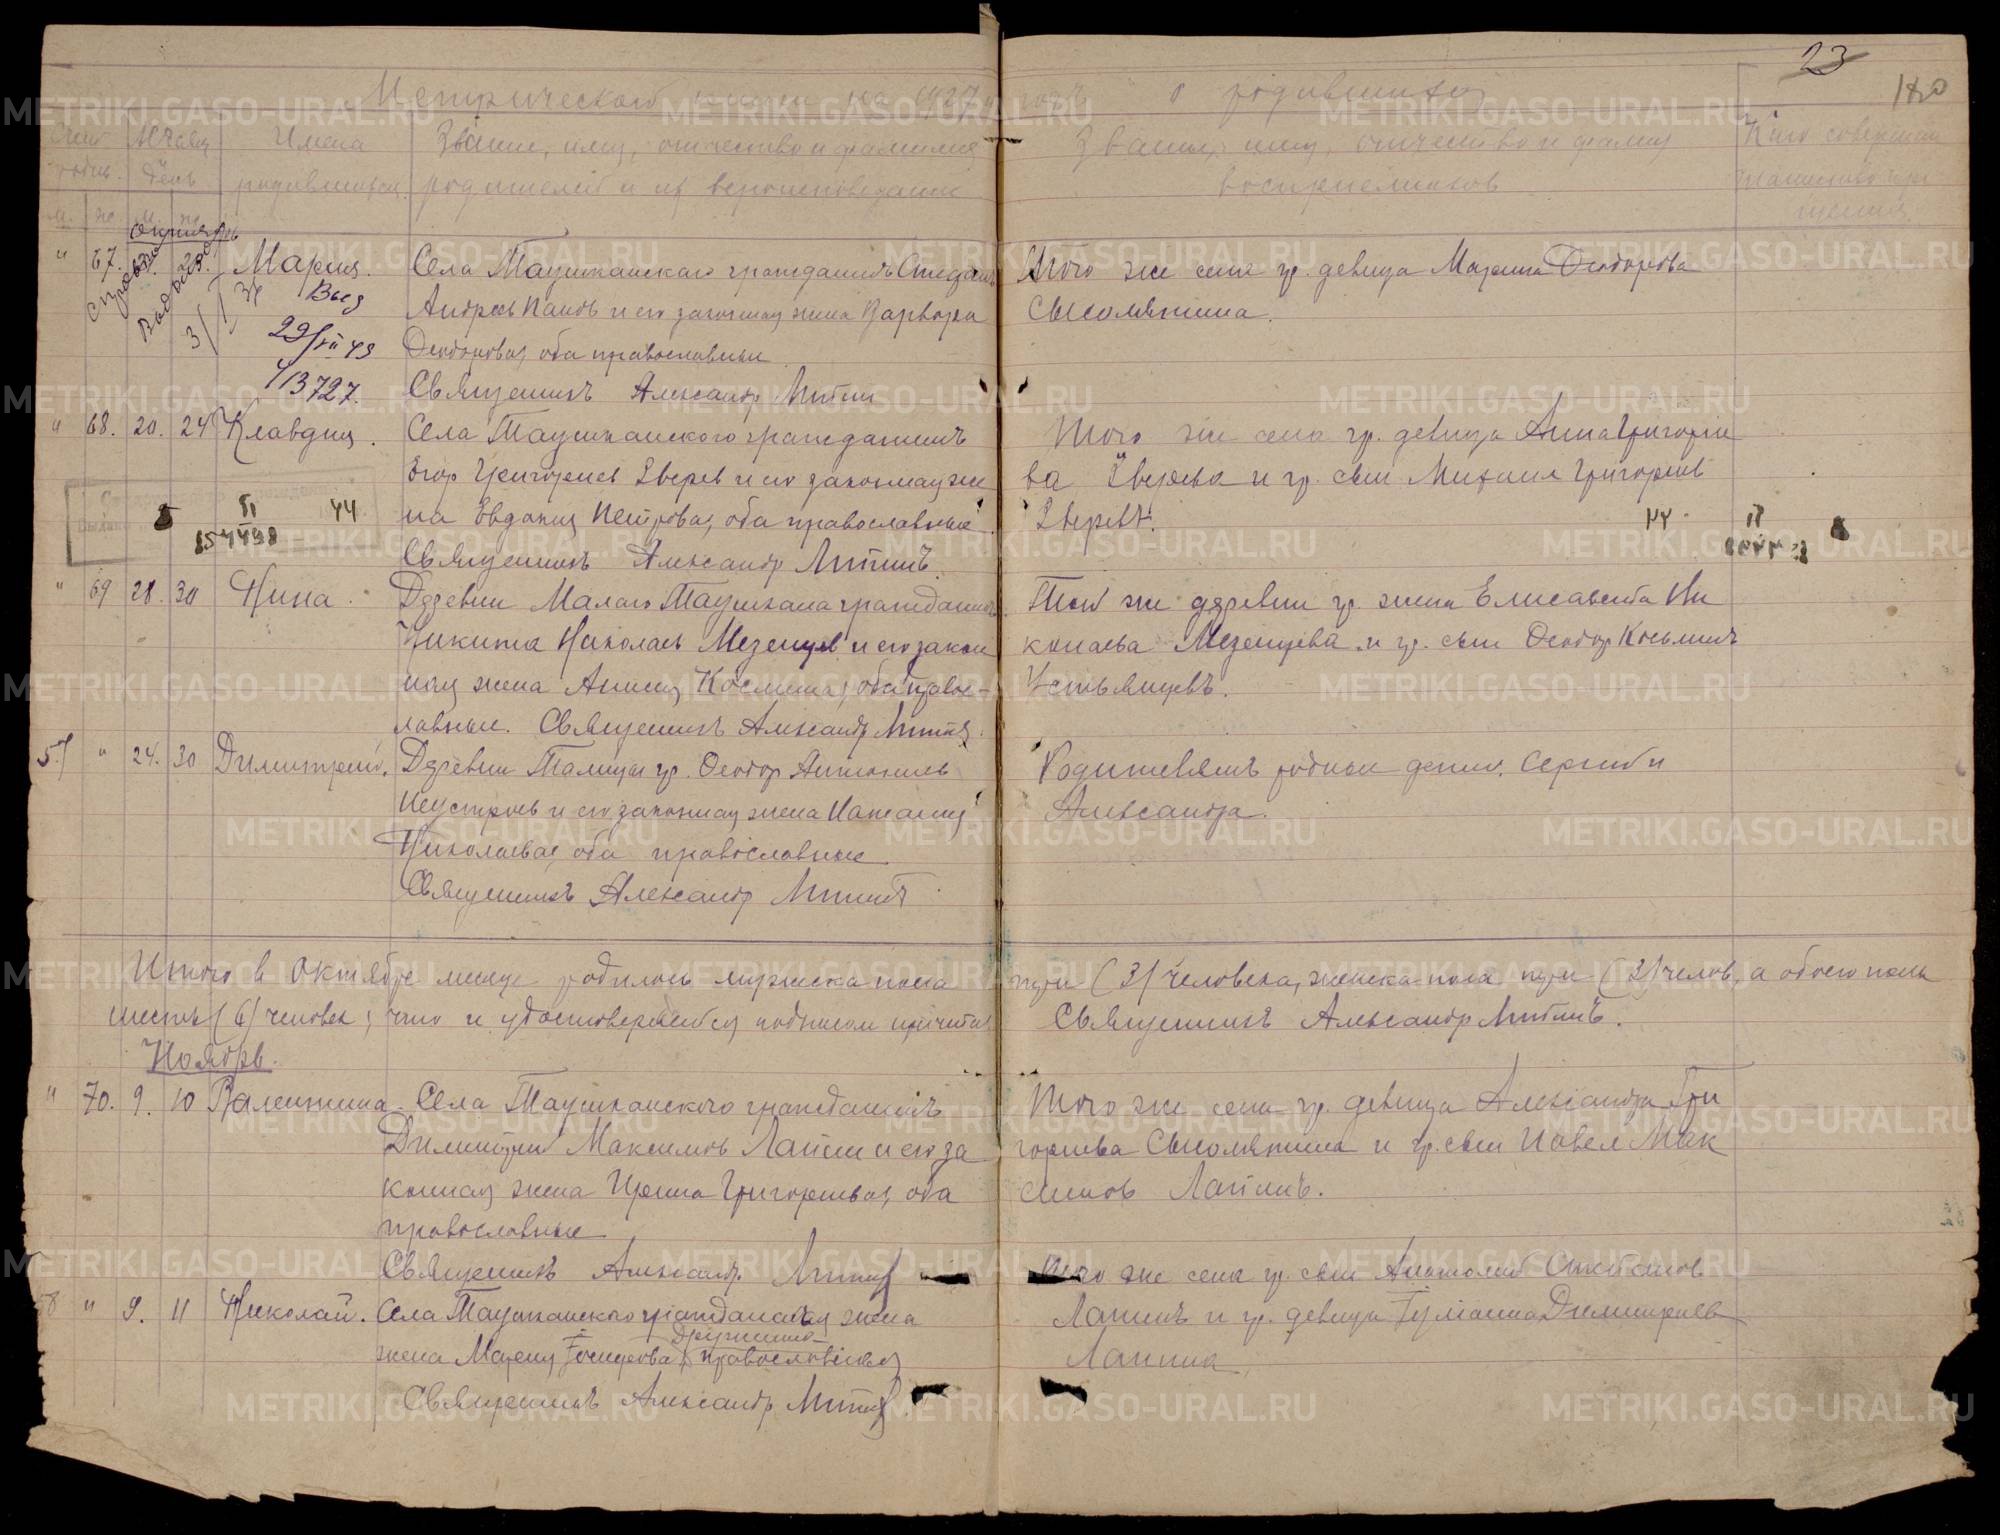 23
180
Метрической книги на 1927 годъ о родившихся
Счет родив.
Месяц день
Имена родившихся
Звание, имя, отчество и фамилия
родителей и их вероисповедание
Звание, имя, отчество и фамил
восприемников
Кто совершал
таинство кре
щения
м. ж. м. ж.
Октябрь
" 67. 28. Мария. Села Таушканскаго гражданинъ Стефанъ
Андреев Пановъ и его законная жена Варвара
Феодорова, оба православные
Священникъ Александр Митин
Того же села гр. девица Марина Феодорова
Сысолятина.
Справка
Выд
29/VII 49
413727.
" 68. 20. 24 Клавдия. Села Таушканского гражданинъ
Егор Григориев Зверев и его законная же
на Евдокия Петрова, оба православные
Священникъ Александр Митинъ.
Того же села гр. девица Анна Григорие
ва Зверева и гр. сын Михаил Григориев
Зверевъ.
" 69 28. 30 Нина. Деревни Малаго Таушкана гражданинъ
Никита Николаев Мезенцев и его закон
ная жена Анисия Космина, оба правос-
лавные. Священникъ Александр Митин
Той же деревни гр. жена Елисавета Ни
колаева Мезенцева и гр. сын Феодор Косьминъ
Устьянцевъ.
57 " 24. 30 Димитрий. Деревни Талицы гр. Феодор Антониев
Неустроев и его законная жена Наталия
Николаева, оба православные
Священникъ Александр Митинъ
Родителямъ родные дети. Сергий и
Александра.
Итого в Октябре месяце родилось мужска пола три (3) человека, женска пола три (3) челов, а обоего пола
шесть (6) человек, что и удостоверяется подписом причта Священникъ Александр Митинъ.
Ноябрь.
" 70. 9. 10 Валентина. Села Таушканского гражданинъ
Димитрий Максимов Лапин и его за
конная жена Ирина Григориева, оба
православные
Священникъ Александр Митин
Того же села гр. девица Александра Гри
гориева Сысолятина и гр. сын Павел Мак
симов Лапинъ.
58 " 9. 11 Николай. Села Таушканского гражданская жена
жена Мария православная
Священникъ Александр Митин
Того же села гр. сын Анатолий
Лапинъ и гр. девица Димитриев
Лапина